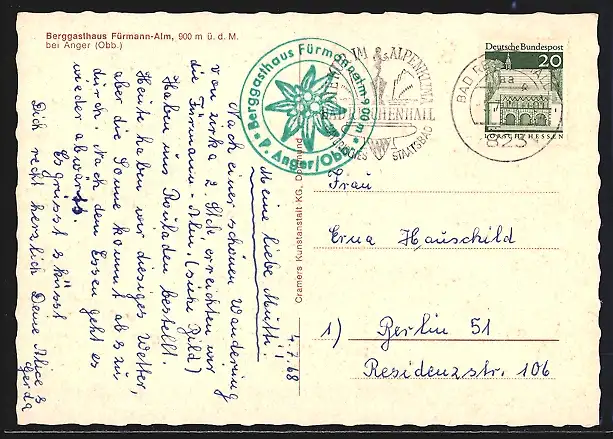 Berggasthaus Fürmann-Alm, 900 m ü. d. M.
bei Anger (Obb.)
Berggasthaus Fürmannalm-900 m
P. Anger/Obb.
IM ALPENKLIMA
BAD REICHENHALL
STAATSBAD
BAD REICHENHALL
aa
823
Deutsche Bundespost
20
LORSCH/HESSEN
4.7.68
Meine liebe Mutti!
Nach einer schönen Wanderung
von zirka 2 Std. erreichten wir
die Fürmann-Alm. (siehe Bild)
Haben uns Rouladen bestellt.
Heute haben wir diesiges Wetter,
aber die Sonne kommt ab & zu
durch. Nach dem Essen geht es
wieder abwärts.
Es grüsst & küsst
Dich recht herzlich Deine Alice &
Gerda
Cramers Kunstanstalt KG, Dortmund
Frau
Erna Hauschild
1) Berlin 51
Residenzstr. 106